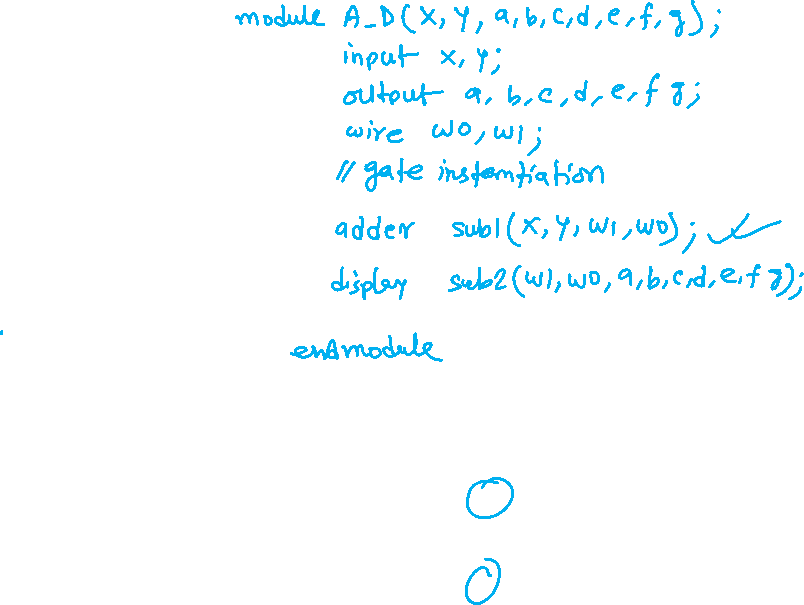 module A_D(x, y, a, b, c, d, e, f, g);
input x, y;
output a, b, c, d, e, f g;
wire w0, w1;
// gate instantiation
adder sub1(x, y, w1, w0);
display sub2(w1, w0, a, b, c, d, e, f g);
endmodule